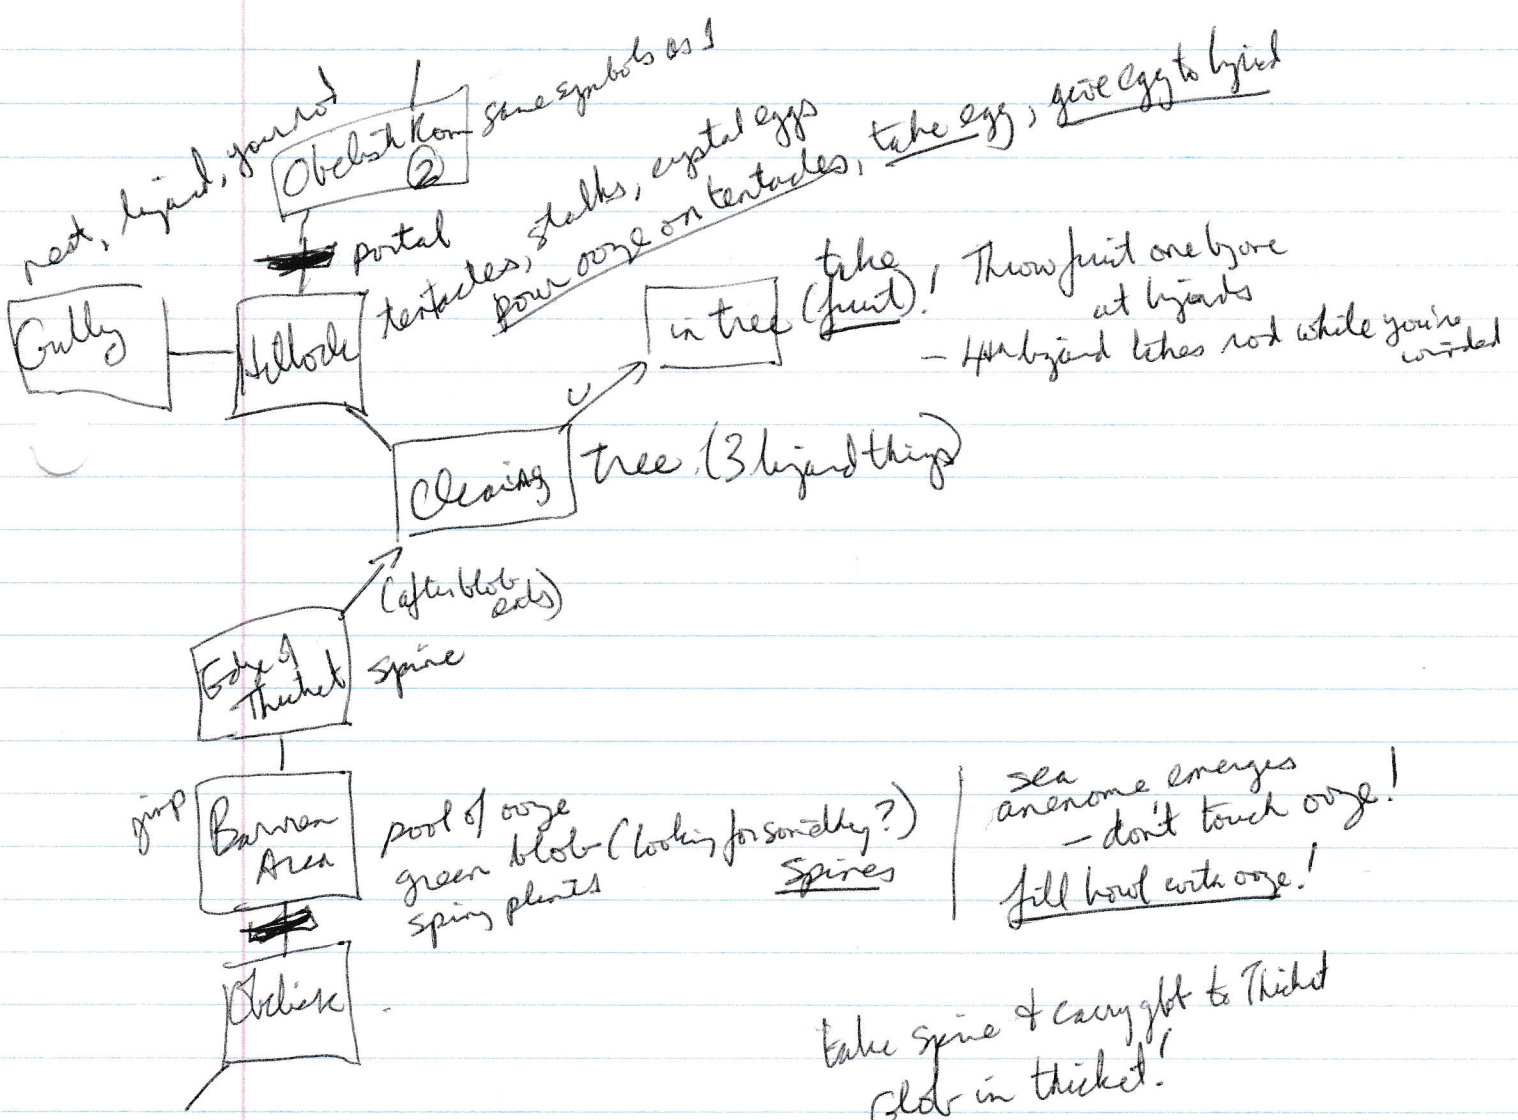 nest, lizard, your rod
Obelisk Room
②
same symbols as 1
portal
tentacles, stalks, crystal eggs
pour ooze on tentacles, take egg, give egg to lizard
Gully
Hillock
in tree
take
(fruit)!
Throw fruit one by one
at lizards
- 4th lizard takes rod while you're
winded
U
Clearing
tree (3 lizard things)
(after blob
eats)
Edge of
Thicket
spine
jump
Barren
Area
pool of ooze
green blob (looking for something?)
spiny plants
spines
sea
anenome emerges
- don't touch ooze!
fill bowl with ooze!
Obelisk
take spine & carry glob to Thicket
Glob in thicket!